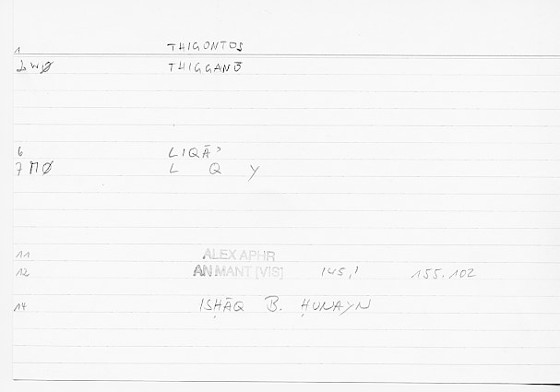 1 THIGONTOS
2 WØ THIGGANŌ
6 LIQĀʾ
7 MØ L Q Y
11 ALEX APHR
12 AN.MANT [VIS] 145,1 155.102
14 ISḤĀQ B. ḤUNAYN